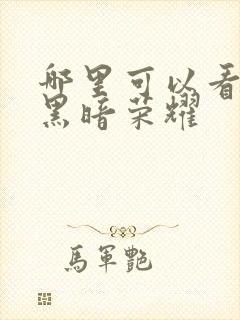 哪里可以看
黑暗荣耀
馬軍艷